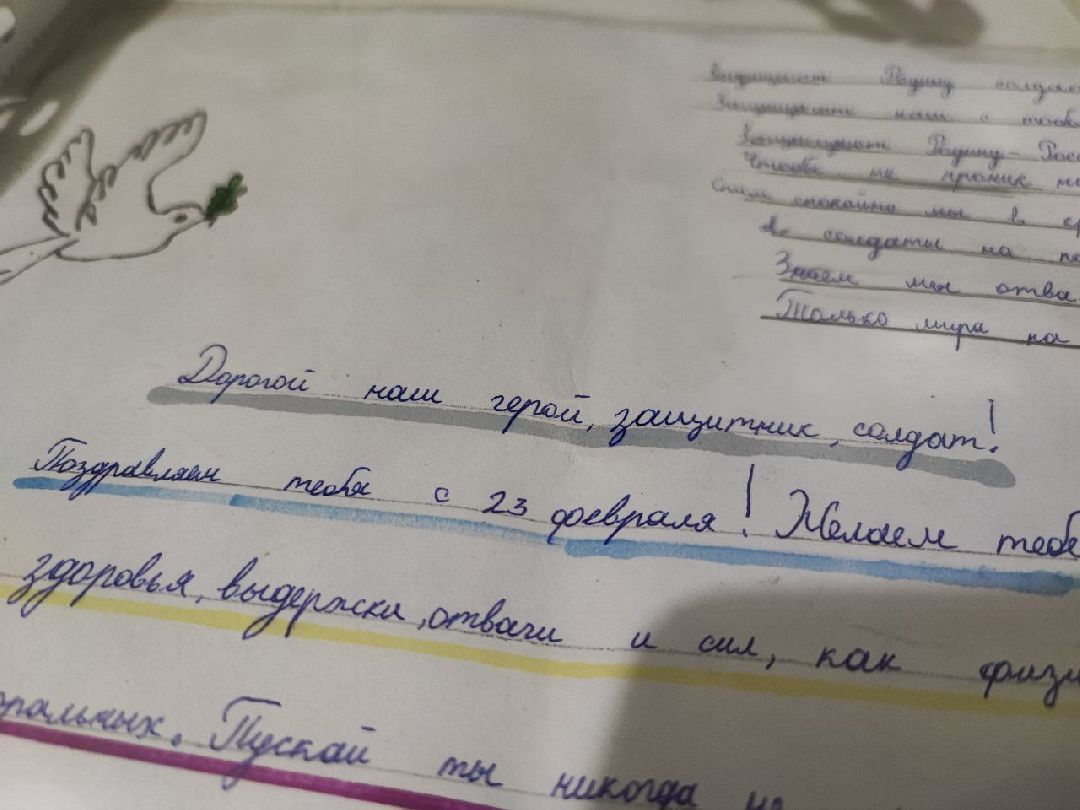 Защищают Родину солдаты
Защищают нам с тобо
Защищают Родину - Рос
Чтобы не проник н
Спим спокойно мы в кр
А солдаты на по
Знаем мы отва
Только мира на
Дорогой наш герой, защитник, солдат!
Поздравляем тебя с 23 февраля! Желаем тебе
здоровья, выдержки, отваги и сил, как физи
оральных. Пускай ты никогда не